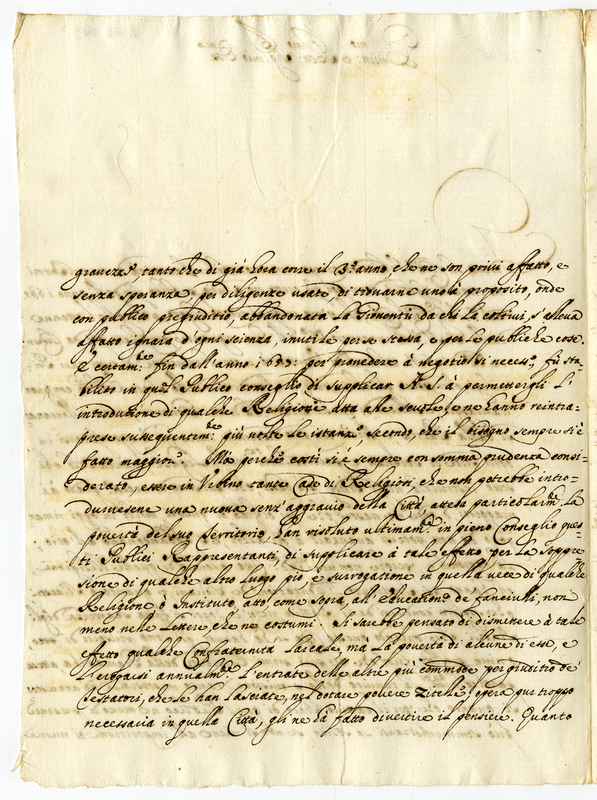 gravezza, tanto che di già hora corre il 3.º anno, che ne son privi affatto, e
senza speranza, per diligenze usate, di trovarne uno à proposito, onde
con publico pregiuditio, abbandonata la Gioventù da chi la coltivi, s'alleva
affatto ignara d'ogni scienza, inutile per se stessa, e per le publiche cose.
E certam.te fin dall'anno 1657: per provedere à negotio sì necess.º, fù sta-
bilito in quel Publico conseglio di supplicar N. S. à permetergli l'
introduzione di qualche Religione atta alle scuole, e ne hanno reintra-
prese susseguentem.te più volte le istanze, secondo, che il bisogno sempre si è
fatto maggiore. Mà perche costì si è sempre con somma prudenza consi-
derato, essere in Urbino tante Case di Religiosi, che non potrebbe intro-
durvesene una nuova senz'aggravio della Città, attesa particolarm.te la
povertà del suo Territorio, han risoluto ultimam.te in pieno Conseglio ques-
ti Publici Rappresentanti, di supplicare à tale effetto per la soppres-
sione di qualche altro luogo pio, e surrogatione in quella vece di qualche
Religione ò Instituto, atto, come sopra, all'educatione de fanciulli, non
meno nelle lettere, che ne costumi. Si sarebbe pensato di dismettere à tale
effetto qualche Confraternita laicale, mà la povertà di alcune di esse, e
l'erogarsi annualm.te l'entrate delle altre più commode per giuditio de
Testatori, che le han lasciate, nel dotare povere Zitelle, opera pur troppo
necessaria in quella Città, gli ne hà fatto divertire il pensiere. Quanto